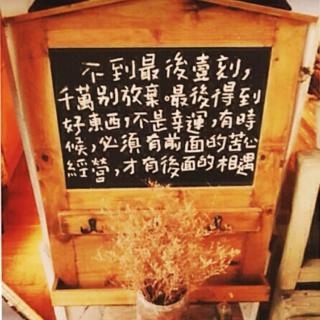 不到最後壹刻,
千萬别放棄。最後得到
好東西,不是幸運,有時
候,必須有前面的苦心
經營,才有後面的相遇